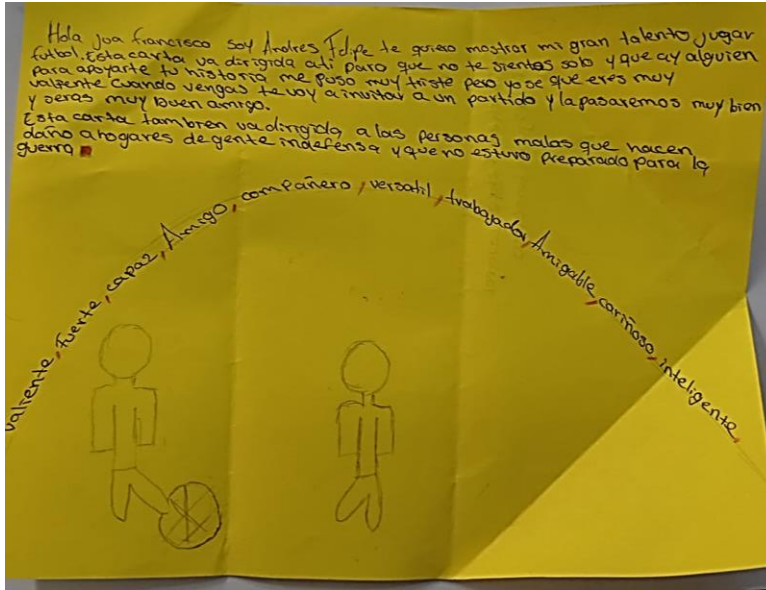 Hola jua francisco soy Andres Felipe te quiero mostrar mi gran talento jugar
futbol. Esta carta va dirigida a ti para que no te sientas solo y que ay alguien
para apoyarte tu historia me puso muy triste pero yo se que eres muy
valiente cuando vengas te voy a invitar a un partido y la pasaremos muy bien
y seras muy buen amigo.
Esta carta tambien va dirigida a las personas malas que hacen
daño a hogares de gente indefensa y que no estuvo preparado para la
guerra.
valiente, Fuerte, capaz, Amigo, compañero, versatil, trabajador, Amigable, cariñoso, inteligente,